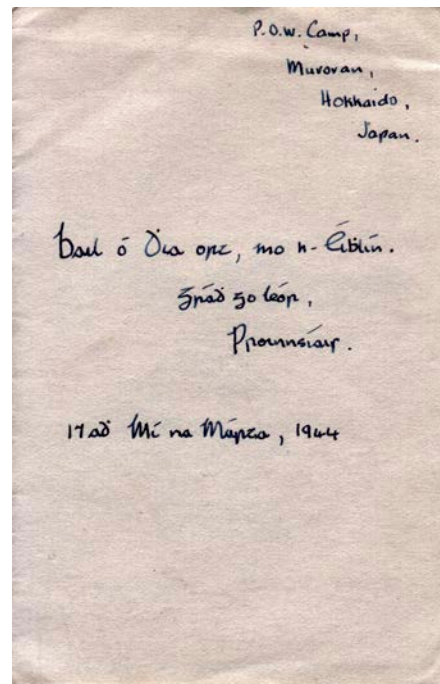 P.O.W. Camp,
Muroran,
Hokkaido,
Japan.
Bail ó Ḋia ort, mo h-Eiḃlín.
Gráḋ go leór,
Proinnsías.
17aḋ Mí na Márta, 1944